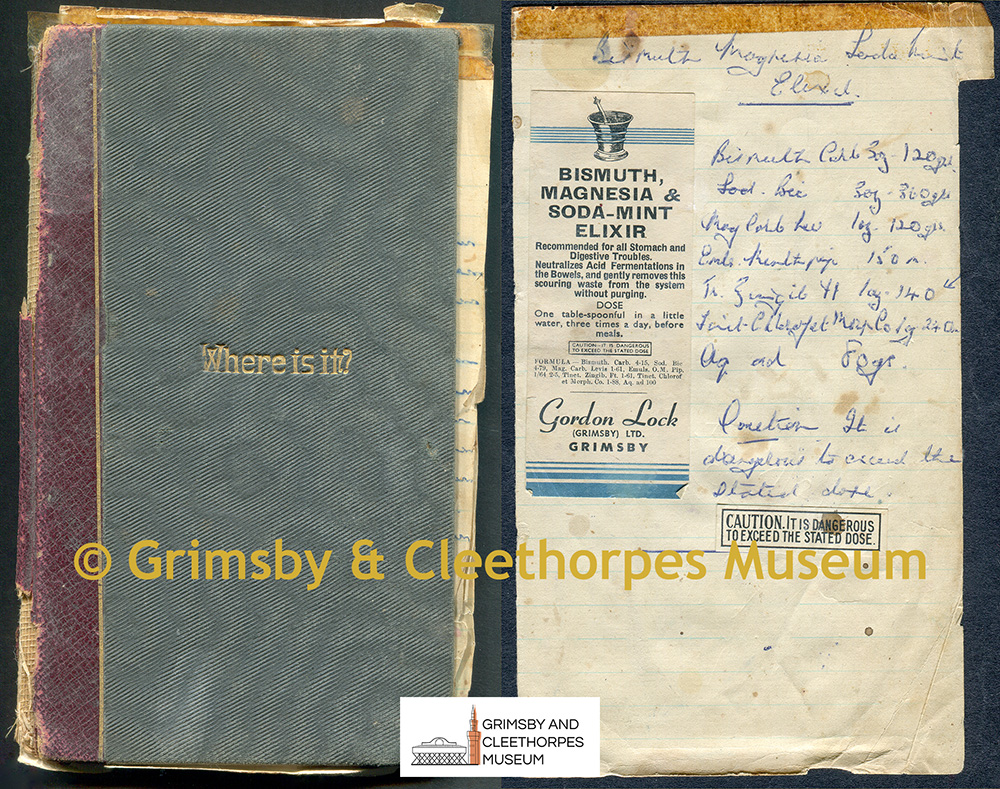 Where is it?
Bismuth Magnesia Soda Mint
Elixir.
BISMUTH,
MAGNESIA &
SODA-MINT
ELIXIR
Recommended for all Stomach and
Digestive Troubles.
Neutralizes Acid Fermentations in
the Bowels, and gently removes this
scouring waste from the system
without purging.
DOSE
One table-spoonful in a little
water, three times a day, before
meals.
CAUTION—IT IS DANGEROUS
TO EXCEED THE STATED DOSE
FORMULA—Bismuth. Carb. 4-15, Sod. Bic
4-79, Mag. Carb. Levis 1-61, Emuls. O.M. Pip.
1/64 2-5, Tinct. Zingib. Ft. 1-61, Tinct. Chlorof
et Morph. Co. 1-88, Aq. ad 100
Gordon Lock
(GRIMSBY) LTD.
GRIMSBY
Bismuth Carb 3oz - 120grs
Sod. Bic 3oz - 360grs
Mag Carb Lev 1oz - 120grs.
Emls. Menth pip 150 m.
Tr. Zingib 1oz - 140
Tinct Chlorof et Morph Co 240m
Aq ad
Caution It is
dangerous to exceed the
stated dose.
CAUTION. IT IS DANGEROUS
TO EXCEED THE STATED DOSE.
© Grimsby & Cleethorpes Museum
GRIMSBY AND
CLEETHORPES
MUSEUM